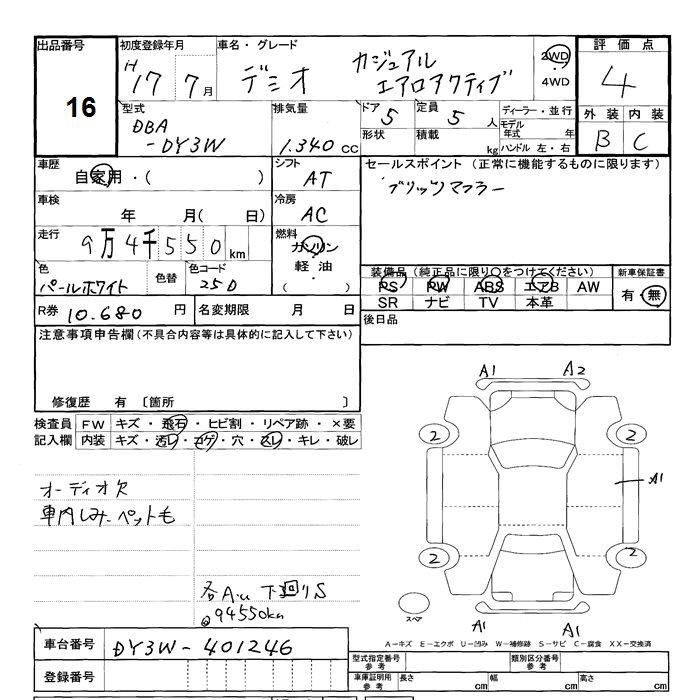 出品番号 16
初度登録年月 H17 7月
車名・グレード デミオ カジュアル エアロアクティブ
2WD・4WD
評価点 4
外装 B 内装 C
型式 DBA-DY3W
排気量 1.340 cc
ドア 5
形状
定員 5 人
積載 kg
ディーラー・並行
モデル年式 年
ハンドル 左・右
車歴 自家用・( )
シフト AT
車検 年 月( 日)
冷房 AC
走行 9万4千550 km
燃料 ガソリン 軽油 ・( )
色 パールホワイト
色替
色コード 25D
R券 10.680 円
名変期限 月 日
セールスポイント(正常に機能するものに限ります)
ブリッツマフラー
装備品(純正品に限り○をつけてください)
PS PW ABS エアB AW
SR ナビ TV 本革
新車保証書 有・無
後日品
注意事項申告欄(不具合内容等は具体的に記入して下さい)
修復歴 有 〔箇所 〕
検査員記入欄
FW キズ・飛石・ヒビ割・リペア跡・×要
内装 キズ・汚レ・コゲ・穴・スレ・キレ・破レ
オーディオ欠
車内しみ、ペット毛
各A.u 下回りS
@94550km
A1 A2
2 2
A1
2 2
A1 A1
スペア
A-キズ E-エクボ U-凹み W-補修跡 S-サビ C-腐食 XX-交換済
車台番号 DY3W-401246
登録番号
型式指定番号 参考
類別区分番号 参考
車庫証明用 参考 長さ cm 幅 cm 高さ cm